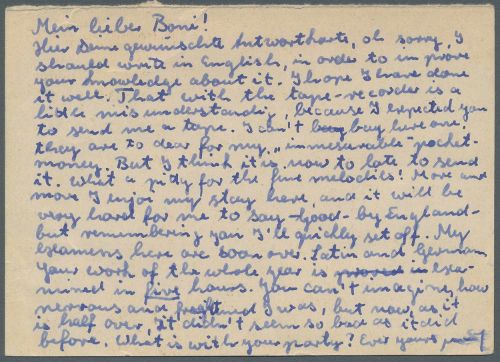 Mein lieber Boni!
Hier Deine gewünschte Antwortkarte, oh sorry, I
should write in English, in order to improve
your knowledge about it. I hope I have done
it well. That with the tape-recorder is a
little misunderstandig, because I expected you
to send me a tape. I can't buy buy here one.
they are to dear for my "immesurable" pocket-
money. But I think it is now to late to send
it. What a pity for the fine melodies! More and
more I enjoy my stay here, and it will be
very hard for me to say -Good-by England-
but remembering you I'll quickly set off. My
examens here are soon over. Latin and German
Your work of the whole year is proved in exa-
mined in five hours. You can't imagine, how
nervous and I was, but now, as it
is half over, it didn't seem so bad as it did
before. What is with your party? Ever yours